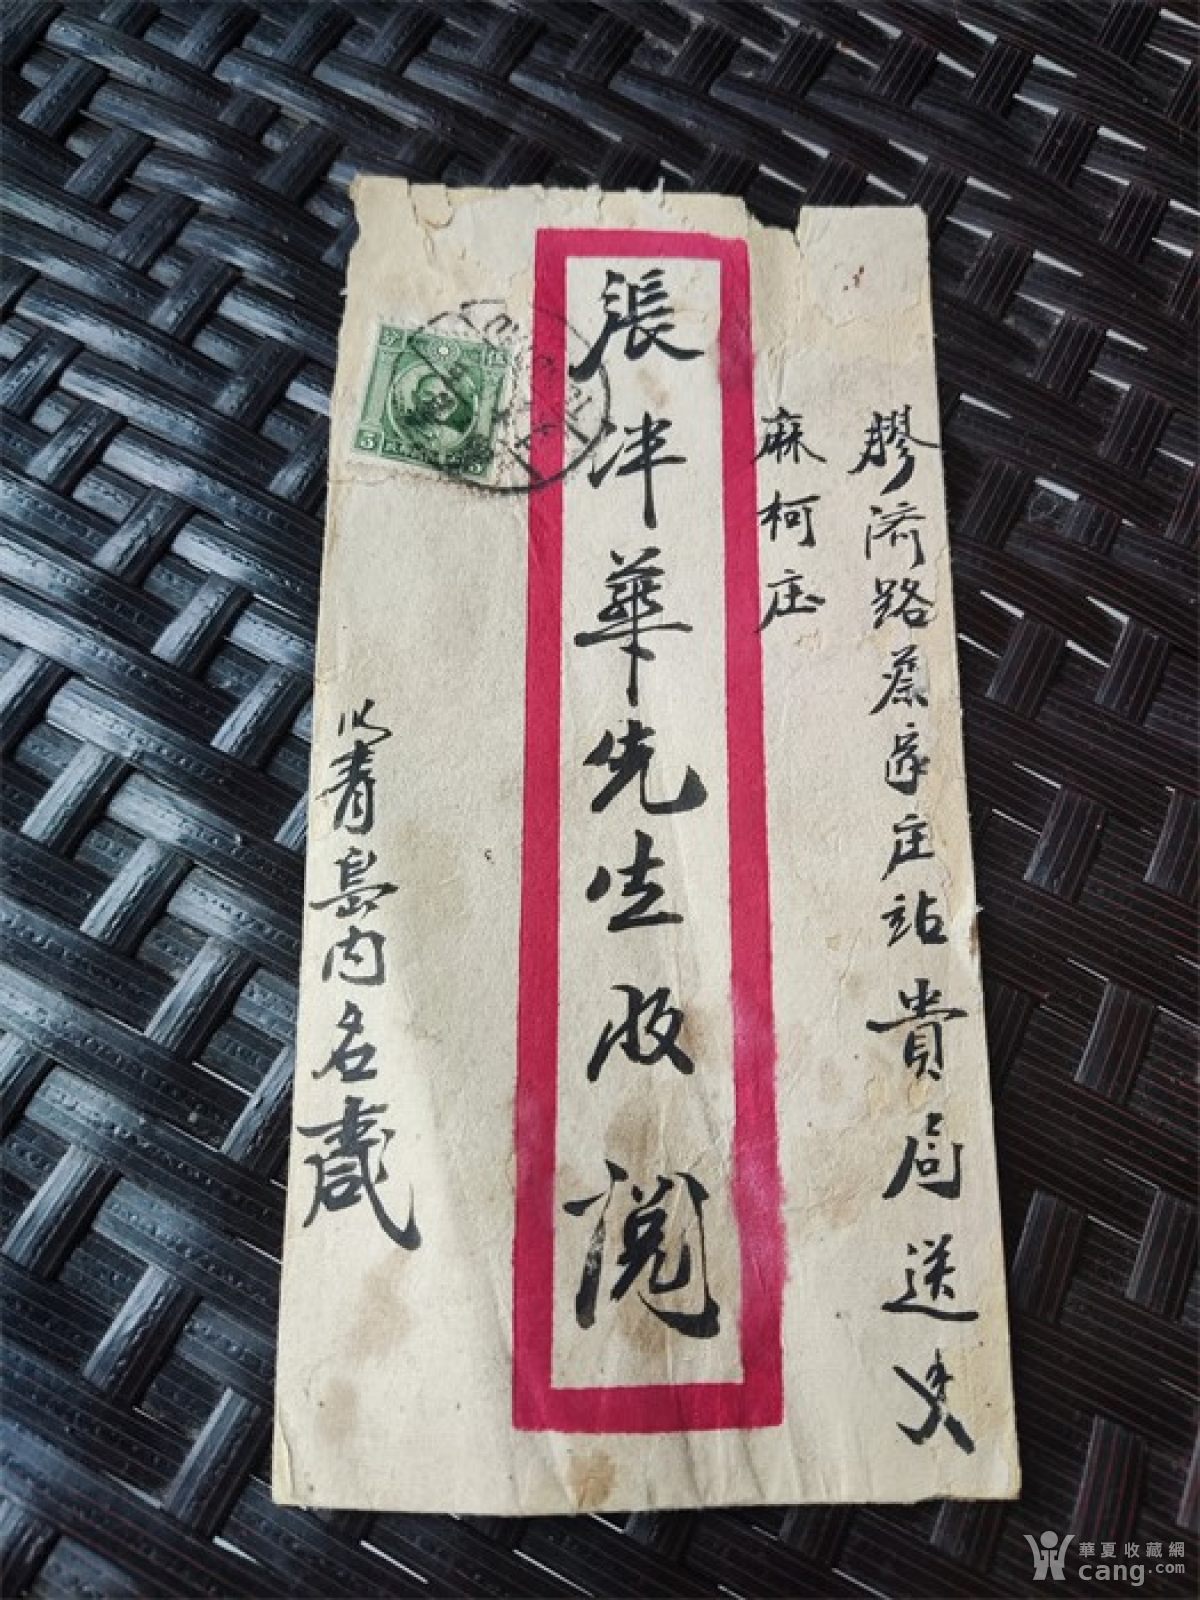 膠济路蔡家庄站貴局送交
麻柯庄
張泮華先生收閲
青島内名
5
5
華夏收藏網
cang.com